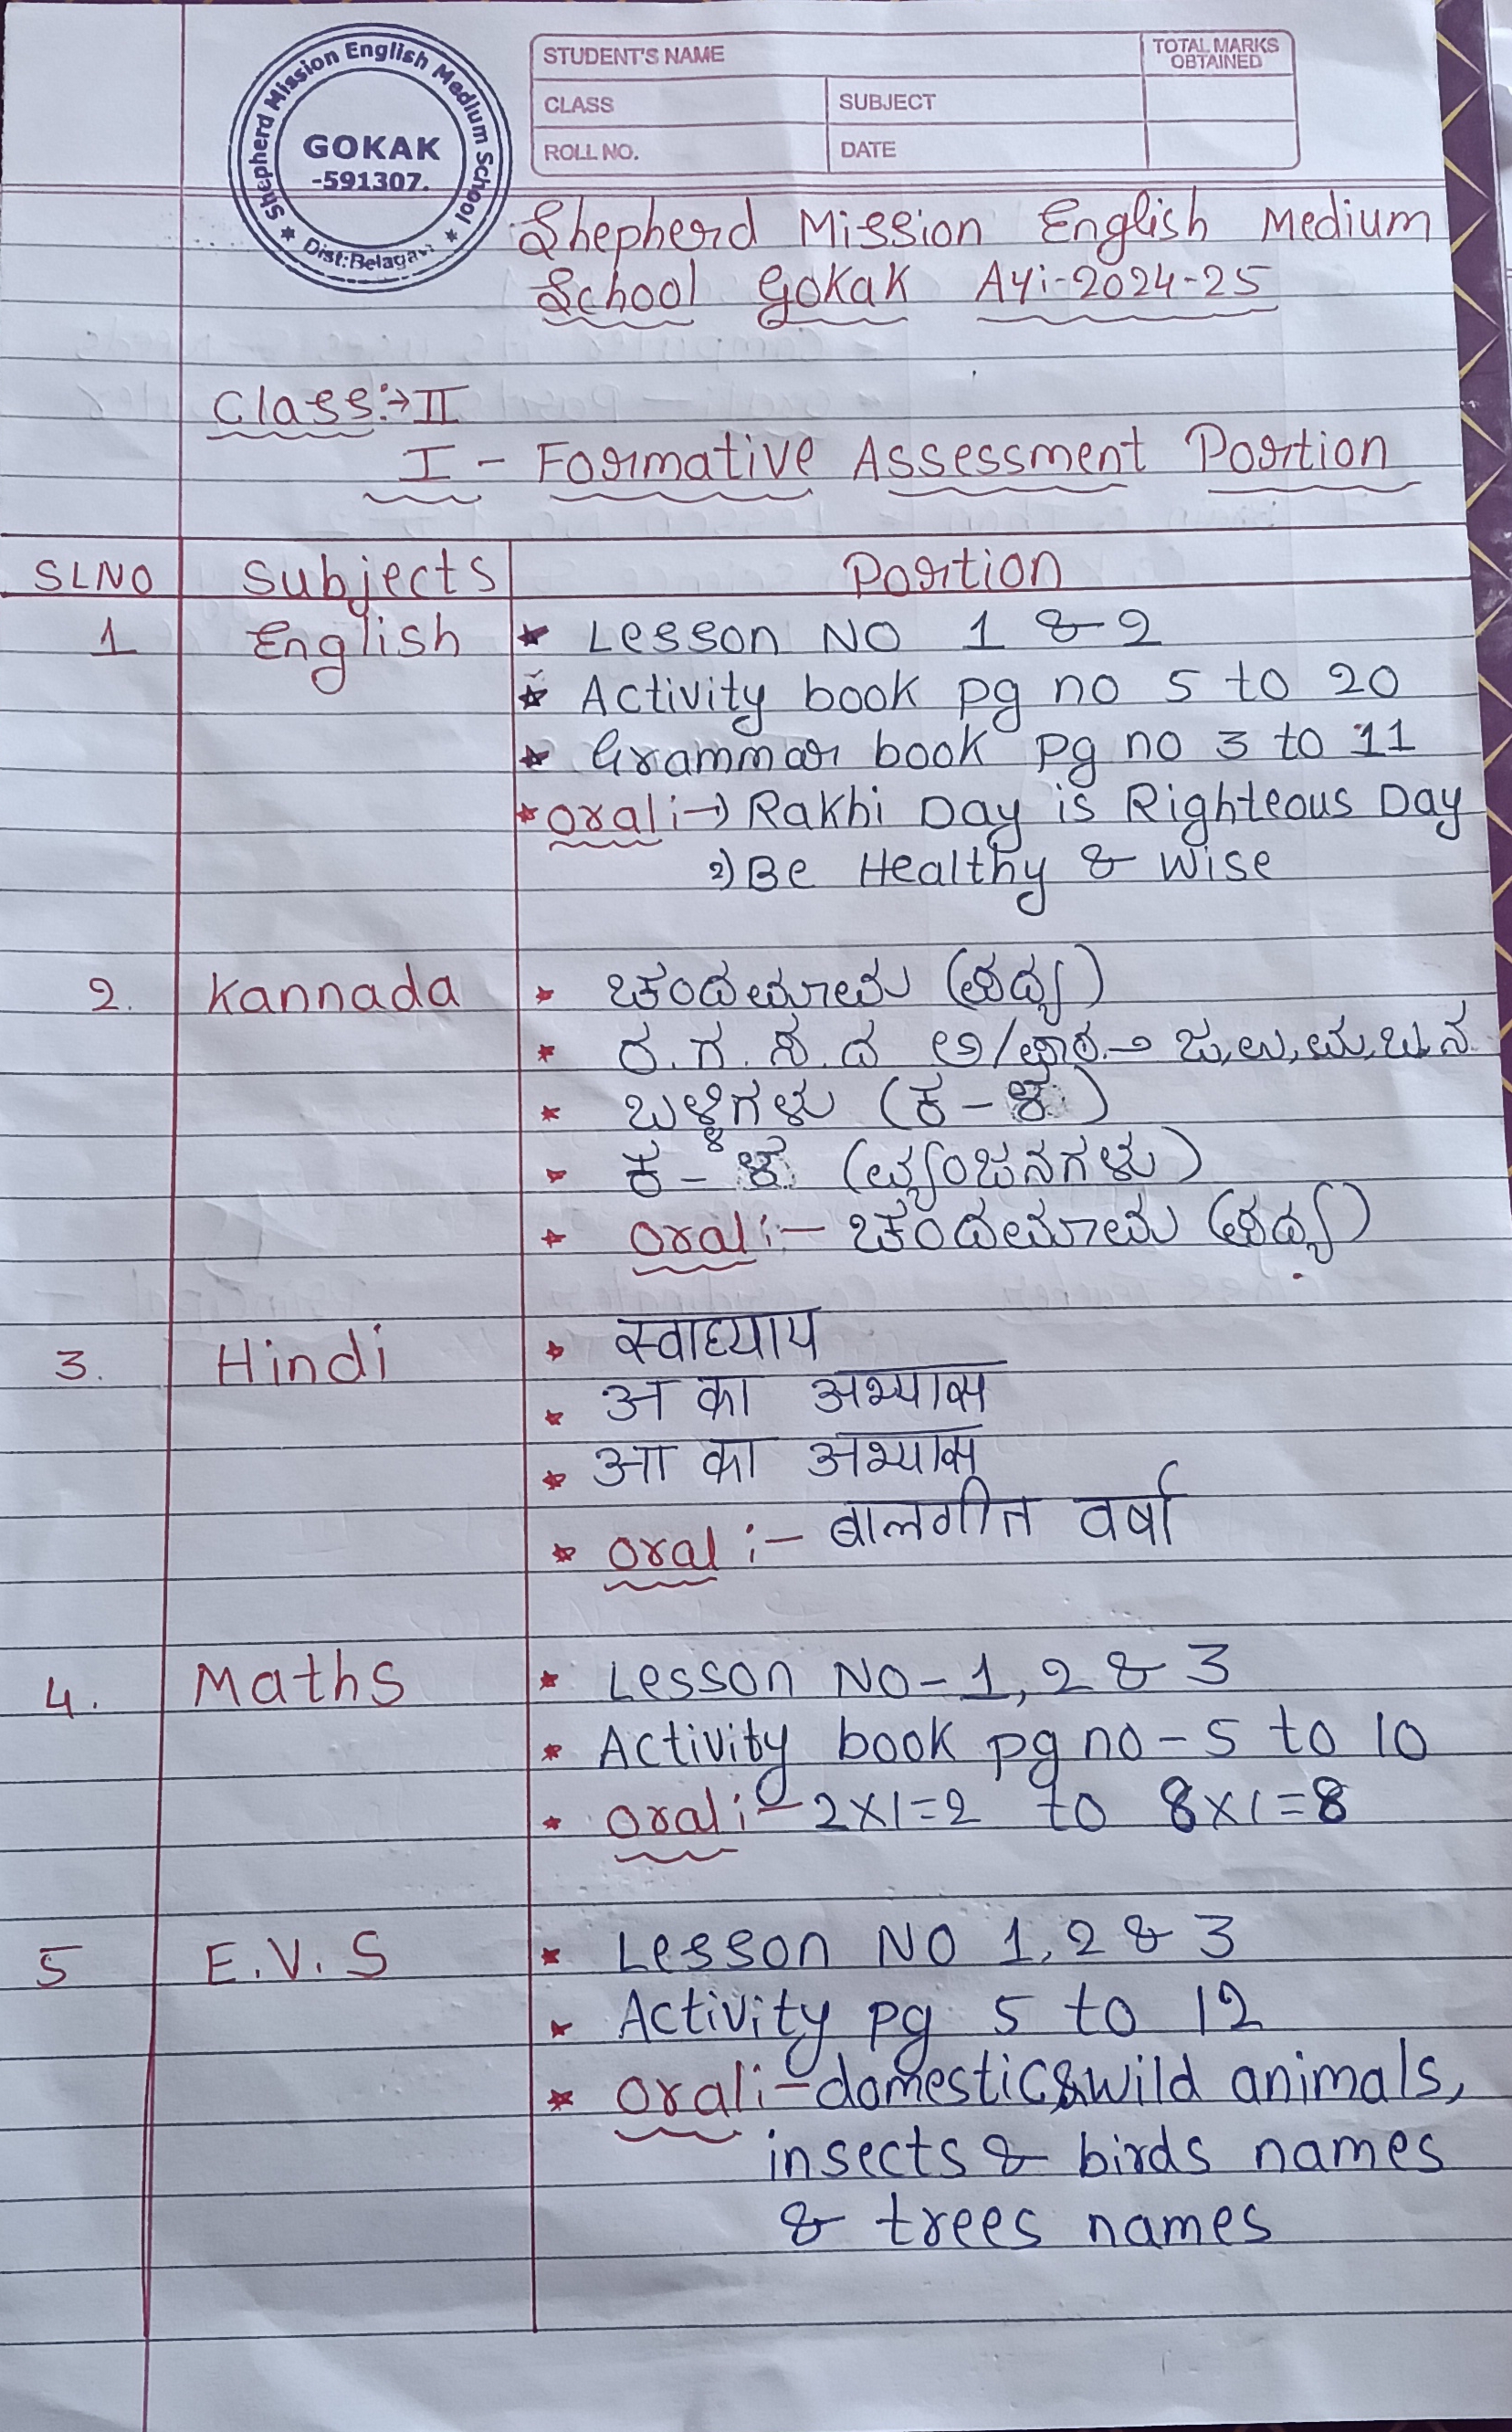 Shepherd Mission English Medium School
GOKAK
-591307.
Dist:Belagavi
STUDENT'S NAME
TOTAL MARKS OBTAINED
CLASS
SUBJECT
ROLL NO.
DATE
Shepherd Mission English Medium
School Gokak AYi-2024-25
Class:→II
I - Formative Assessment Portion
SLNO Subjects Portion
1 English * Lesson NO 1 & 2
* Activity book pg no 5 to 20
* Grammar book pg no 3 to 11
* Oral:→ Rakhi Day is Righteous Day
2) Be Healthy & Wise
2. Kannada * ಚಂದಮಾಮ (ಪದ್ಯ)
* ರ.ಗ.ಸ.ದ ಅ
* ಬಳ್ಳಿಗಳು (ಕ-ಳ)
* ಕ-ಳ (ವ್ಯಂಜನಗಳು)
* Oral:- ಚಂದಮಾಮ (ಪದ್ಯ)
3. Hindi * स्वाध्याय
* अ का अभ्यास
* आ का अभ्यास
* Oral :- बालगीत वर्षा
4. Maths * Lesson NO-1, 2 & 3
* Activity book pg no-5 to 10
* Oral:- 2x1=2 to 8x1=8
5 E.V.S * Lesson NO 1, 2 & 3
* Activity pg 5 to 12
* Oral:-domestic&wild animals,
insects & birds names
& trees names